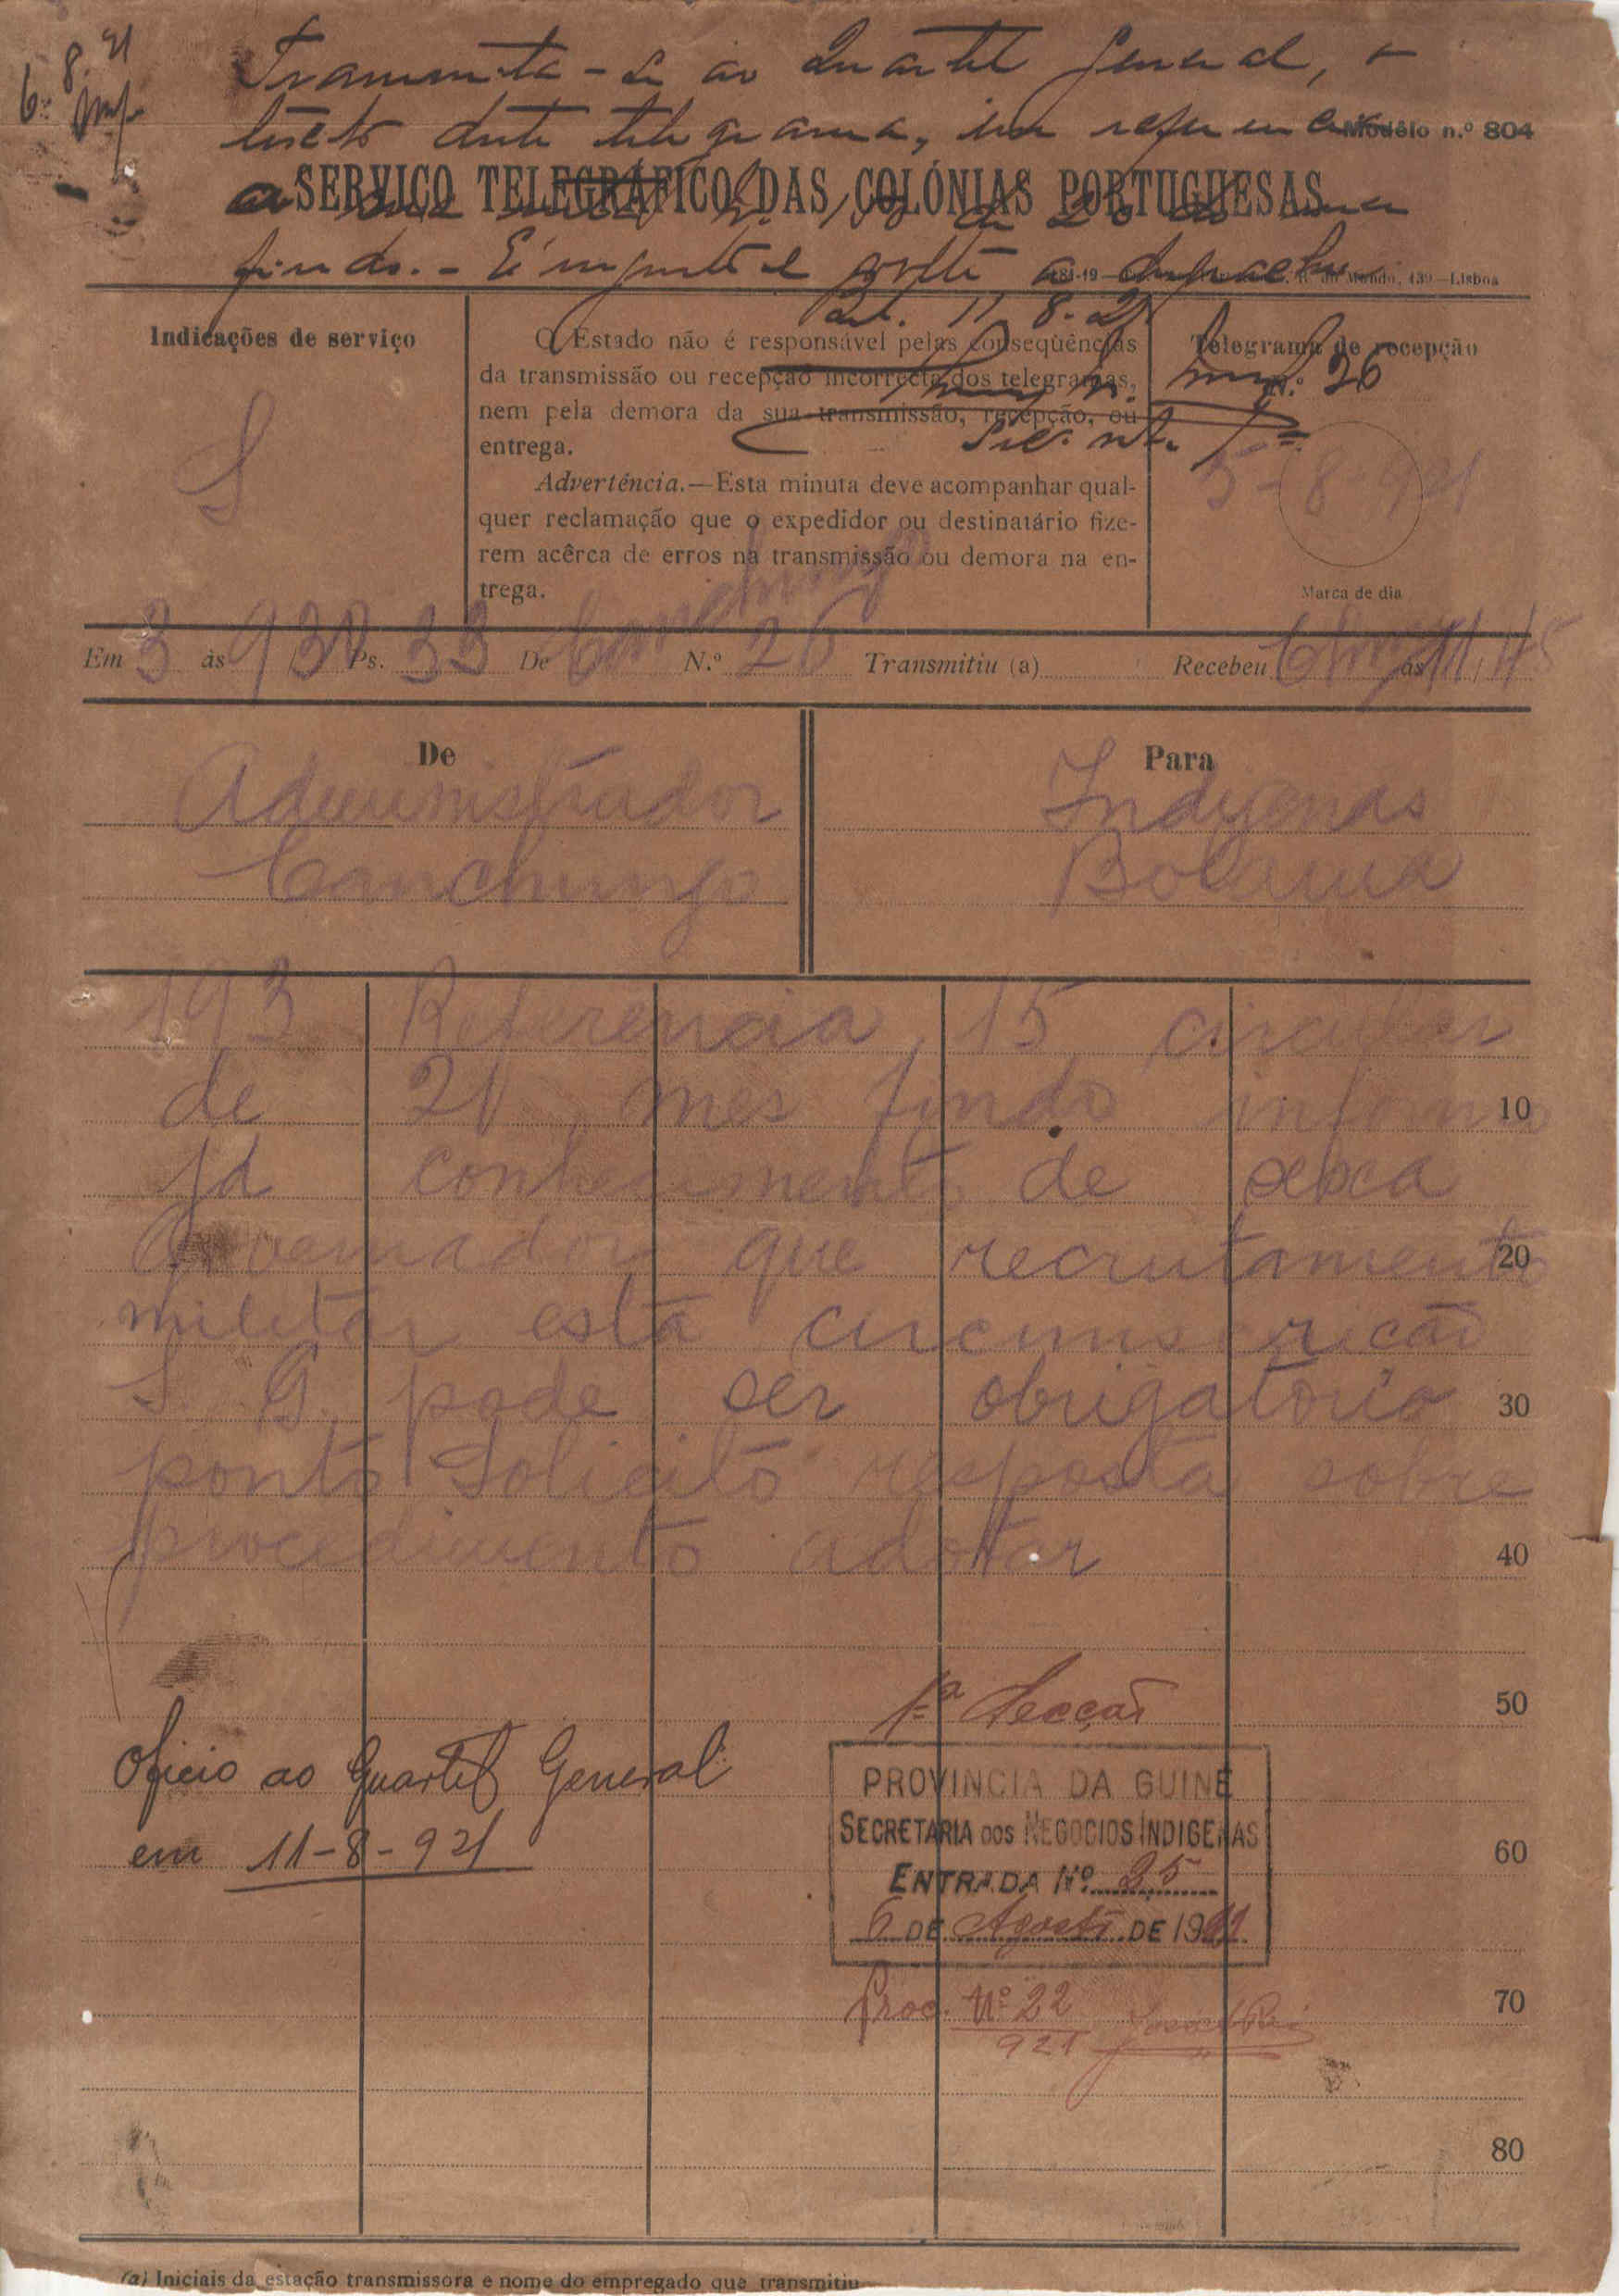 6-8-21
Transmita-se ao Quartel General, o
texto deste telegrama, em referencia
Modêlo n.º 804
SERVIÇO TELEGRÁFICO DAS COLÓNIAS PORTUGUESAS
a sua nota n.º de 20 do mez
findo. - E importe e volte a despacho.
139—Lisboa
Bol. 11-8-21
Indicações de serviço
S
O Estado não é responsável pelas conseqùências
da transmissão ou recepção incorrecta dos telegramas,
nem pela demora da sua transmissão, recepção, ou
entrega.
Advertência.—Esta minuta deve acompanhar qual-
quer reclamação que o expedidor ou destinatário fize-
rem acêrca de erros na transmissão ou demora na en-
trega.
Telegrama de recepção
N.º 26
5-8-921
Marca de dia
Em 3 às 930 Ps. 33 De Canchungo N.º 26 Transmitiu (a) Recebeu às 11,45
De
Administrador
Canchungo
Para
Indigenas
Bolama
193 Referencia 15 circular
de 21 mes findo informo 10
já conhecimento de sexa
Governador que recrutamento 20
militar esta circunscricão
S. G. pode ser obrigatorio 30
ponto Solicito resposta sobre
procedimento adotar 40
50
1ª Secção
Oficio ao Quartel General
em 11-8-921
PROVINCIA DA GUINÉ
SECRETARIA DOS NEGOCIOS INDIGENAS
ENTRADA Nº 25
6 DE Agosto DE 1921
60
Proc. Nº 22
921
70
80
(a) Iniciais da estação transmissora e nome do empregado que transmitiu